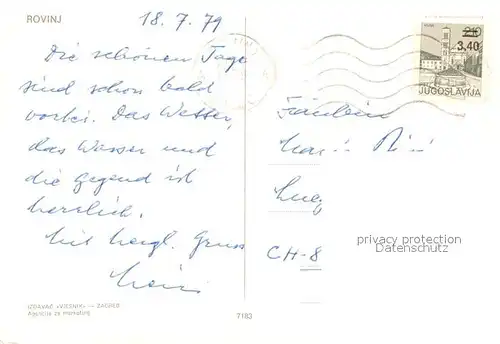 ROVINJ
18.7.79
Die schönen Tage
sind schon bald
vorbei. Das Wetter,
das Wasser und
die Gegend ist
herrlich.
Mit hergl. Gruss
IZDAVAČ «VJESNIK» — ZAGREB
Agencija za marketing
7183
3,40
JUGOSLAVIJA
Fräulein
CH-8
privacy protection
Datenschutz